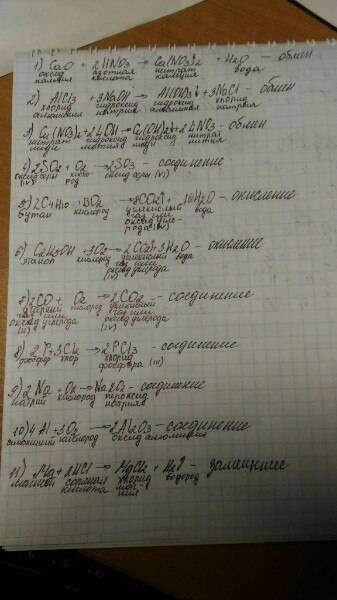 1) CaO + 2HNO3 → Ca(NO3)2 + H2O – обмен
оксид кальция азотная кислота нитрат кальция вода
2) AlCl3 + 3NaOH → Al(OH)3↓ + 3NaCl – обмен
хлорид алюминия гидроксид натрия гидроксид алюминия хлорид натрия
3) Cu(NO3)2 + 2LiOH → Cu(OH)2↓ + 2LiNO3 – обмен
нитрат меди гидроксид лития гидроксид меди нитрат лития
4) 2SO2 + O2 → 2SO3 – соединение
оксид серы (IV) кислород оксид серы (VI)
5) 2C4H10 + 13O2 → 8CO2↑ + 10H2O – окисление
бутан кислород углекислый газ или оксид углерода (IV) вода
6) C2H5OH + 3O2 → 2CO2↑ + 3H2O – окисление
этанол кислород углекислый газ или оксид углерода (IV) вода
7) 2CO + O2 → 2CO2 – соединение
угарный газ или оксид углерода (II) кислород углекислый газ или оксид углерода (IV)
8) 2P + 3Cl2 → 2PCl3 – соединение
фосфор хлор хлорид фосфора (III)
9) 2Na + O2 → Na2O2 – соединение
натрий кислород пероксид натрия
10) 4Al + 3O2 → 2Al2O3 – соединение
алюминий кислород оксид алюминия
11) Mg + 2HCl → MgCl2 + H2↑ – замещение
магний соляная кислота хлорид магния водород